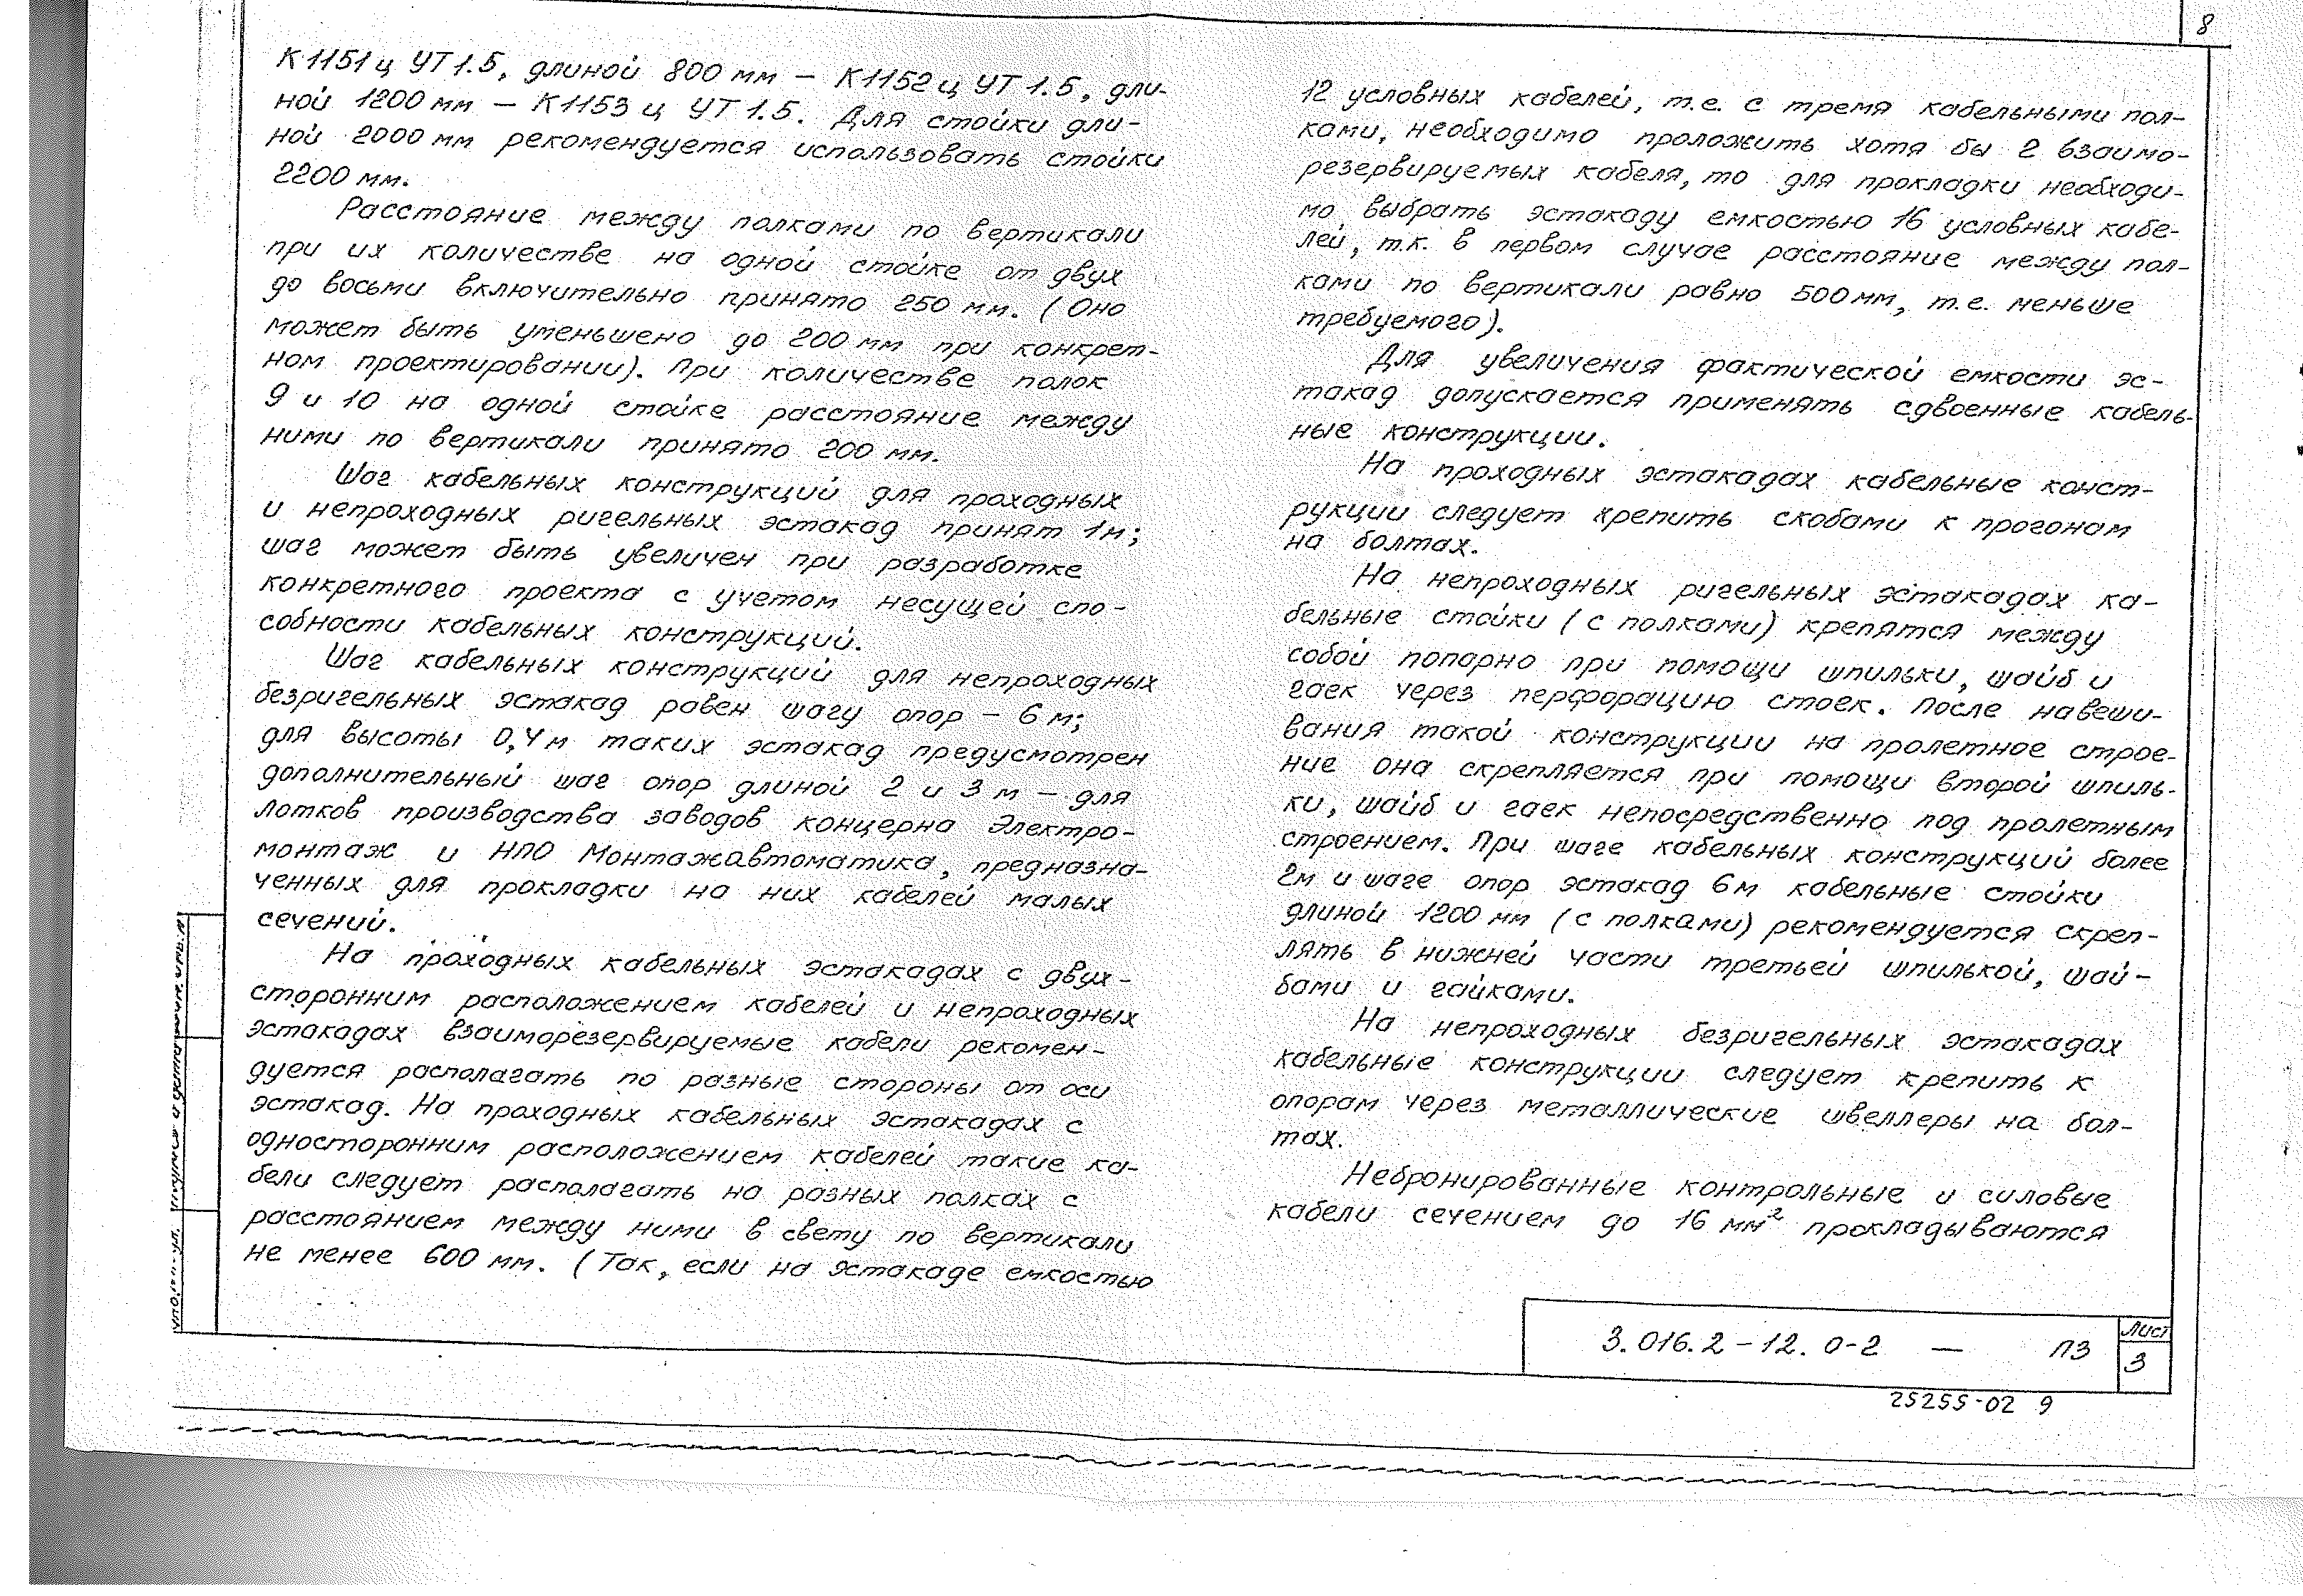 8
К1151ц УТ1.5, длиной 800 мм — К1152ц УТ 1.5, дли-
ной 1200 мм — К1153 ц УТ 1.5. Для стойки дли-
ной 2000 мм рекомендуется использовать стойки
2200 мм.
Расстояние между полками по вертикали
при их количестве на одной стойке от двух
до восьми включительно принято 250 мм. (Оно
может быть уменьшено до 200 мм при конкрет-
ном проектировании). При количестве полок
9 и 10 на одной стойке расстояние между
ними по вертикали принято 200 мм.
Шаг кабельных конструкций для проходных
и непроходных ригельных эстакад принят 1м;
шаг может быть увеличен при разработке
конкретного проекта с учетом несущей спо-
собности кабельных конструкций.
Шаг кабельных конструкций для непроходных
безригельных эстакад равен шагу опор — 6 м;
для высоты 0,4м таких эстакад предусмотрен
дополнительный шаг опор длиной 2 и 3 м — для
лотков производства заводов концерна Электро-
монтаж и НПО Монтажавтоматика, предназна-
ченных для прокладки на них кабелей малых
сечений.
На проходных кабельных эстакадах с двух-
сторонним расположением кабелей и непроходных
эстакадах взаиморезервируемые кабели рекомен-
дуется располагать по разные стороны от оси
эстакад. На проходных кабельных эстакадах с
односторонним расположением кабелей такие ка-
бели следует располагать на разных полках с
расстоянием между ними в свету по вертикали
не менее 600 мм. (Так, если на эстакаде емкостью
12 условных кабелей, т.е. с тремя кабельными пол-
ками, необходимо проложить хотя бы 2 взаимо-
резервируемых кабеля, то для прокладки необходи-
мо выбрать эстакаду емкостью 16 условных кабе-
лей, т.к. в первом случае расстояние между пол-
ками по вертикали равно 500мм, т.е. меньше
требуемого).
Для увеличения фактической емкости эс-
такад допускается применять сдвоенные кабель-
ные конструкции.
На проходных эстакадах кабельные конст-
рукции следует крепить скобами к прогонам
на болтах.
На непроходных ригельных эстакадах ка-
бельные стойки (с полками) крепятся между
собой попарно при помощи шпильки, шайб и
гаек через перфорацию стоек. После навеши-
вания такой конструкции на пролетное строе-
ние она скрепляется при помощи второй шпиль-
ки, шайб и гаек непосредственно под пролетным
строением. При шаге кабельных конструкций более
2м и шаге опор эстакад 6м кабельные стойки
длиной 1200 мм (с полками) рекомендуется скреп-
лять в нижней части третьей шпилькой, шай-
бами и гайками.
На непроходных безригельных эстакадах
кабельные конструкции следует крепить к
опорам через металлические швеллеры на бол-
тах.
Небронированные контрольные и силовые
кабели сечением до 16 мм² прокладываются
3.016.2-12.0-2 — ПЗ
Лист
3
25255-02 9